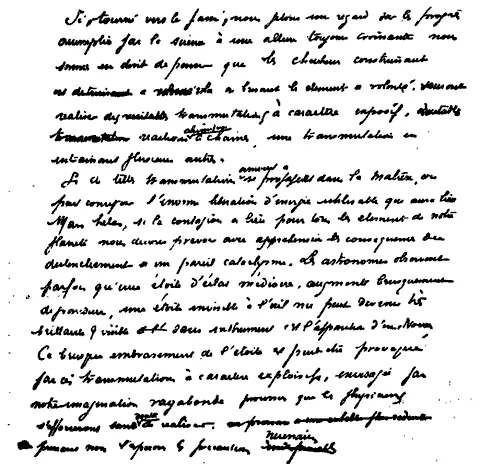 Si tourné vers le passé, nous jetons un regard sur les progrès
accomplis par la science à une allure toujours croissante nous
sommes en droit de penser que les chercheurs construisant
ou les éléments à volonté, sauront
realiser des veritables transmutations à caractère explosif, veritables
reactions chimiques à chaines, une transmutation en
entrainant plusieurs autres.
Si de telles transmutations arrivent à se propager dans la matière, on
peut concevoir l'enorme liberation d'energie utilisable qui aura lieu
Mais hélas, si la contagion a lieu pour tous les elements de notre
planete nous devons prevoir avec apprehension les consequences du
declenchement d'un pareil cataclysme. Les astronomes observent
parfois qu'une étoile d'éclat médiocre, augmente brusquement
de grandeur, une étoile invisible à l'œil nu peut devenir très
brillante & visible sans instrument c'est l'apparition d'une Nova
Ce brusque embrasement de l'étoile est peut être provoqué
par ces transmutations à caractère explosifs, envisagé par
notre imagination vagabonde processus que les physiciens
s'efforcerons sans doute de realiser
prenant nous l'espérons les precautions necessaires